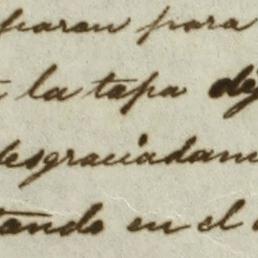 paron para
la tapa
desgraciadam
tando en el